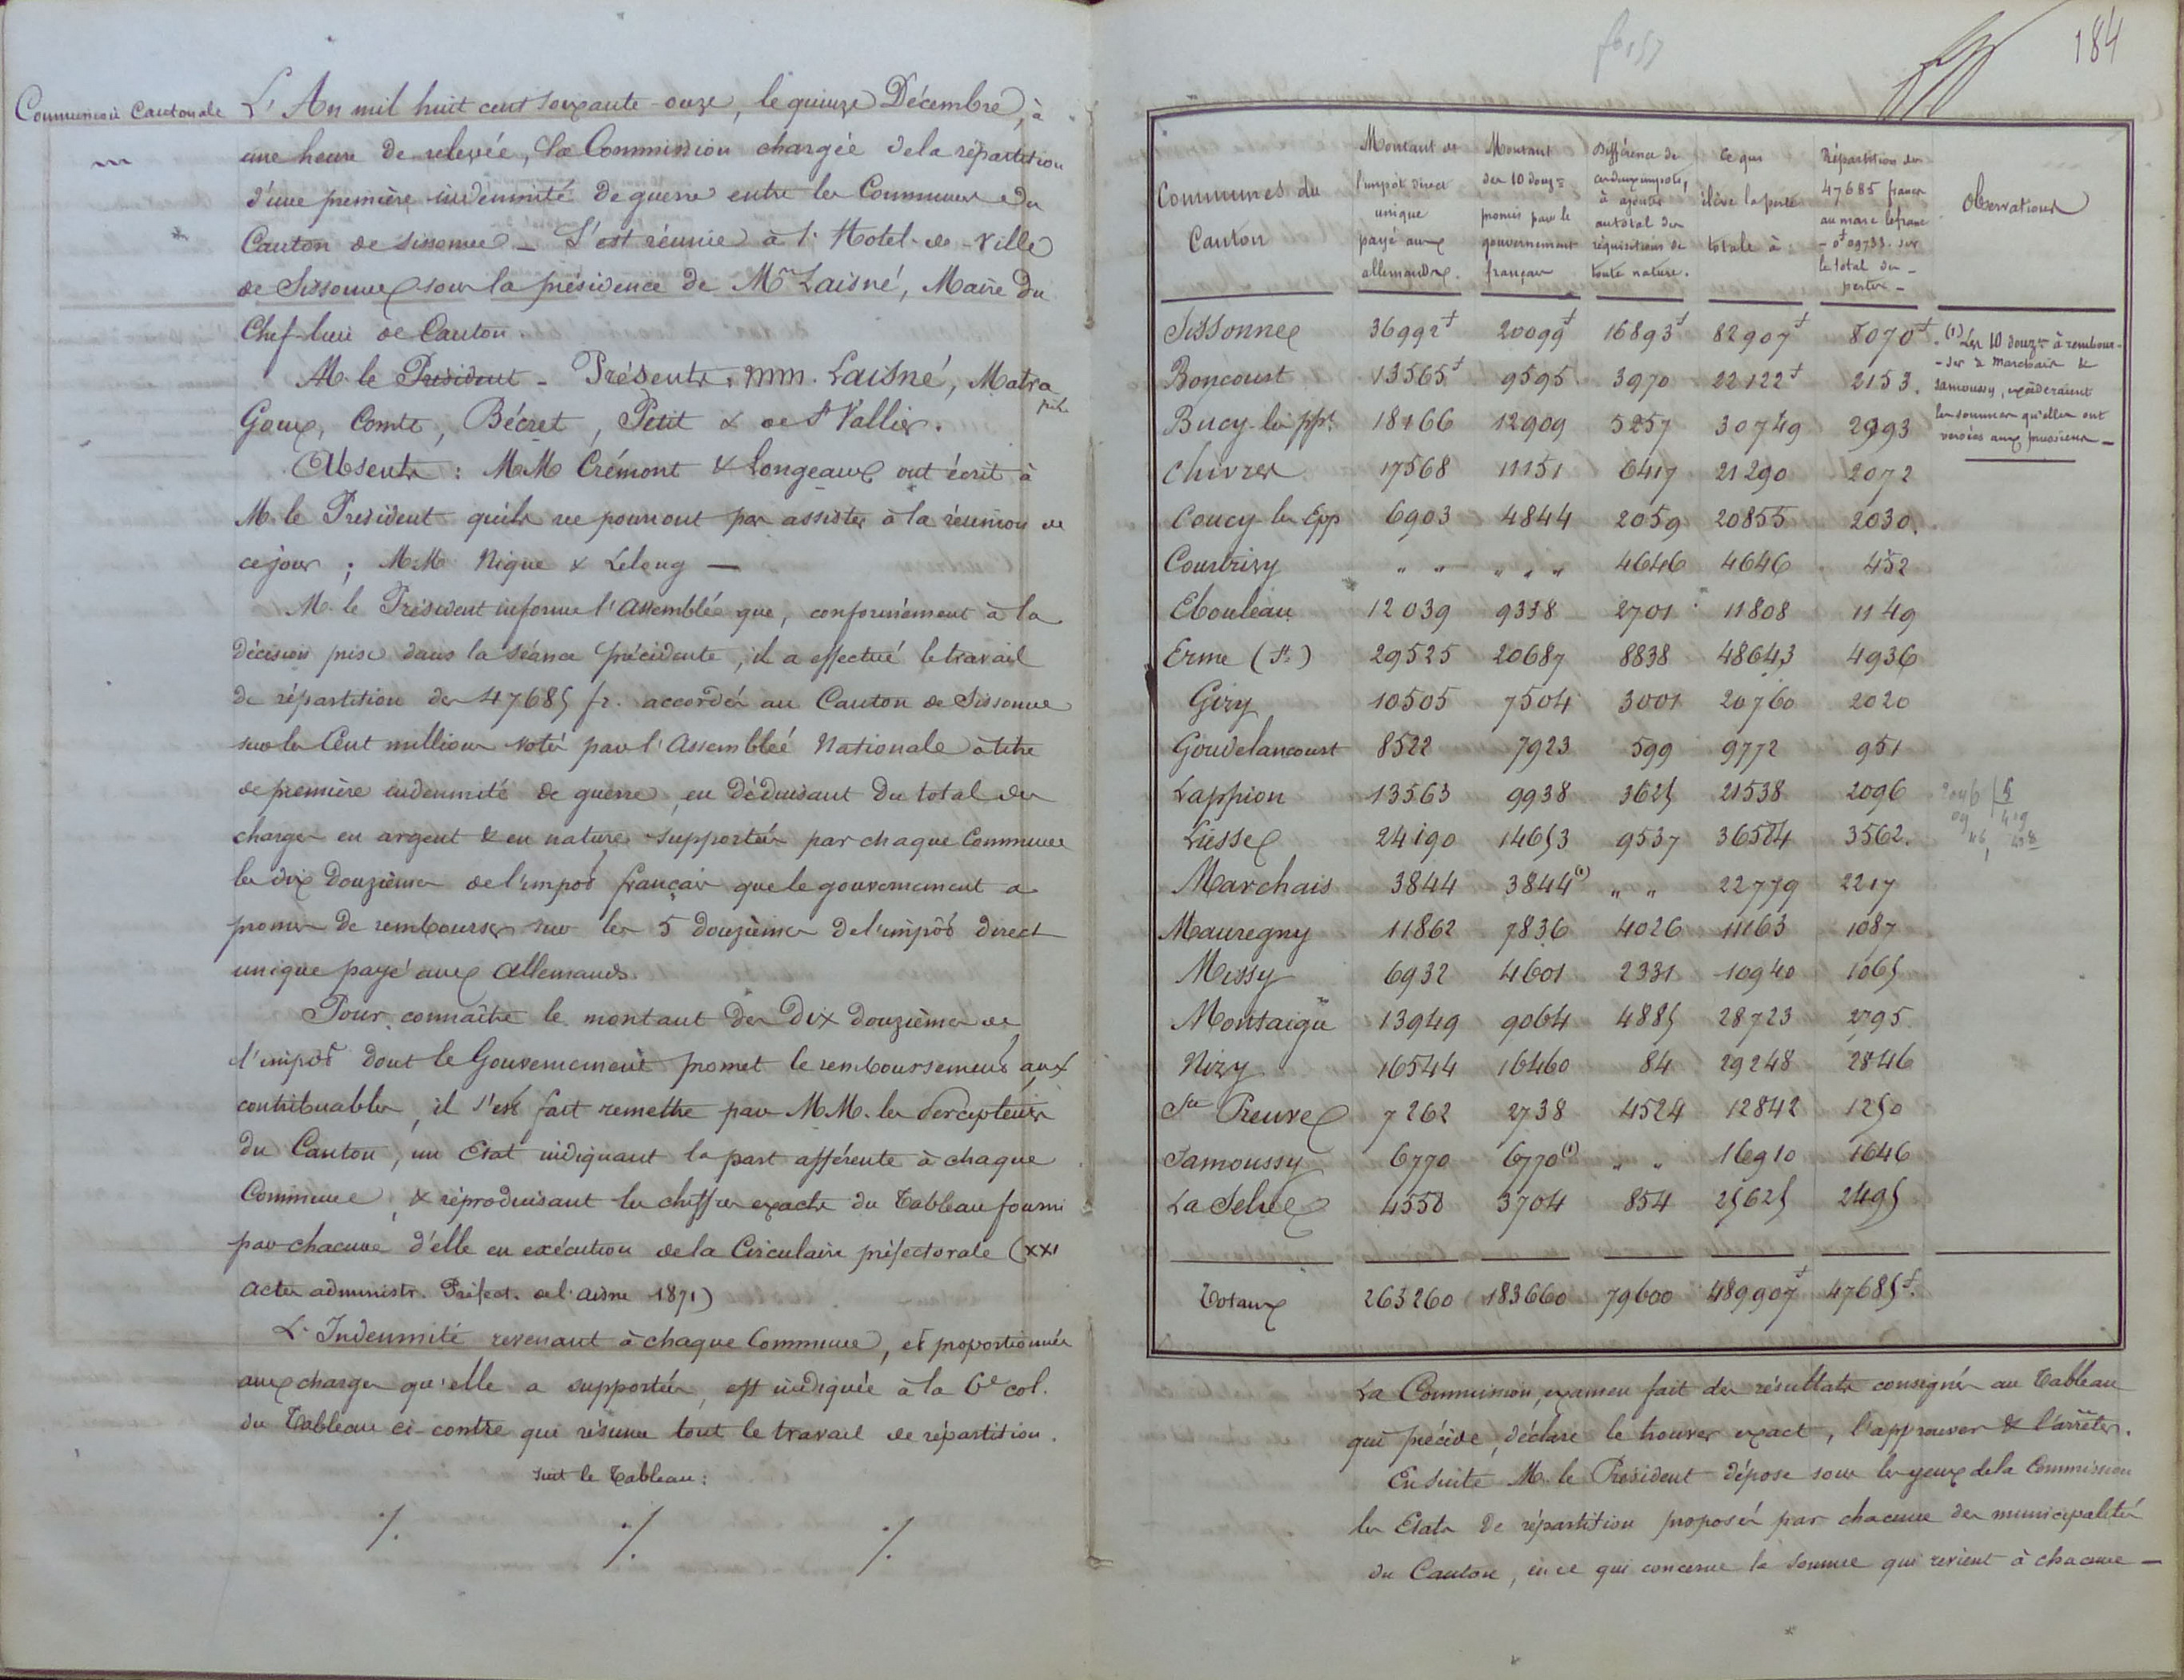 Commission Cantonale
L'An mil huit cent soixante-onze, le quinze Décembre, à
une heure de relevée, la Commission chargée de la répartition
d'une première indemnité de guerre entre les Communes du
Canton de Sissonne _ S'est réunie à l'Hotel-de-Ville
de Sissonne sous la présidence de Mr Laisné, Maire du
Chef-lieu de Canton.
M. le Président - Présents : MM. Laisné, Matra
Goux, Comte, Bécret, Petit & de St Vallier.
Absents : MM Crémont & Longeaux ont écrit à
M. le Président qu'ils ne pourront pas assister à la réunion de
ce jour ; MM. Nique & Lelong —
M. le Président informe l'Assemblée que, conformément à la
décision prise dans la séance précédente, il a effectué le travail
de répartition des 47685 fr. accordés au Canton de Sissonne
sur les Cent millions votés par l'Assemblée Nationale à titre
de première indemnité de guerre, en déduisant du total des
charges en argent & en nature supportées par chaque Commune
les dix douzièmes de l'impôt français que le gouvernement a
promis de rembourser sur les 5 douzièmes de l'impôt direct
unique payé aux Allemands.
Pour connaître le montant des Dix douzièmes de
l'impôt dont le Gouvernement promet le remboursement aux
contribuables, il s'est fait remettre par MM. les Percepteurs
du Canton, un Etat indiquant la part afférente à chaque
Commune, & reproduisant les chiffres exacts du Tableau fourni
par chacune d'elle en exécution de la Circulaire préfectorale (XXI
Actes administr. Préfect. de l'Aisne 1871)
L'Indemnité revenant à chaque Commune, et proportionnée
aux charges qu'elle a supportées, est indiquée à la 6e col.
du Tableau ci-contre qui résume tout le travail de répartition.
Suit le Tableau :
./. ./. ./.
184
Communes du Canton | Montant de l'impôt direct unique payé aux allemands. | Montant des 10 douz. promis par le gouvernement français | Différence de ces deux impôts, à ajouter au total des réquisitions de toute nature. | Ce qui élève la perte totale à : | Répartition des 47685 francs au marc le franc - 0f 09733. sur le total des pertes - | Observations
Sissonne 36992f 20099f 16893f 82907f 8070f
(1) Les 10 douz. à rembour-
-ser à Marchais &
Samoussy, excéderaient
les sommes qu'elles ont
versées aux prussiens —
Boncourt 13565f 9595 3970 22122f 2153.
Bucy-les-ppt 18166 12909 5257 30749 2993
Chivres 17568 11151 6417 21290 2072
Coucy-les Epp 6903 4844 2059 20855 2030.
Courtrizy " " " " " 4646 4646 452
Ebouleau 12039 9338 2701 11808 1149
Erme (St) 29525 20687 8838 48643 4936
Gizy 10505 7504 3001 20760 2020
Goudelancourt 8522 7923 599 9772 951
Lappion 13563 9938 3625 21538 2096
Liesse 24190 14653 9537 36584 3562.
Marchais 3844 3844(1) " " 22779 2217
Mauregny 11862 7836 4026 11163 1087
Missy 6932 4601 2331 10940 1065
Montaigu 13949 9064 4885 28723 2795
Nizy 16544 16460 84 29248 2846
Ste Preuve 7262 2738 4524 12842 1250
Samoussy 6770 6770(1) " " 16910 1646
La Selve 4558 3704 854 25625 2495
Totaux 263260 183660 79600 489907f 47685f.
La Commission, examen fait des résultats consignés au Tableau
qui précède, déclare le trouver exact, l'approuver & l'arrêter.
Ensuite M. le Président dépose sous les yeux de la Commission
les Etats de répartition proposés par chacune des municipalités
du Canton, en ce qui concerne la somme qui revient à chacune —